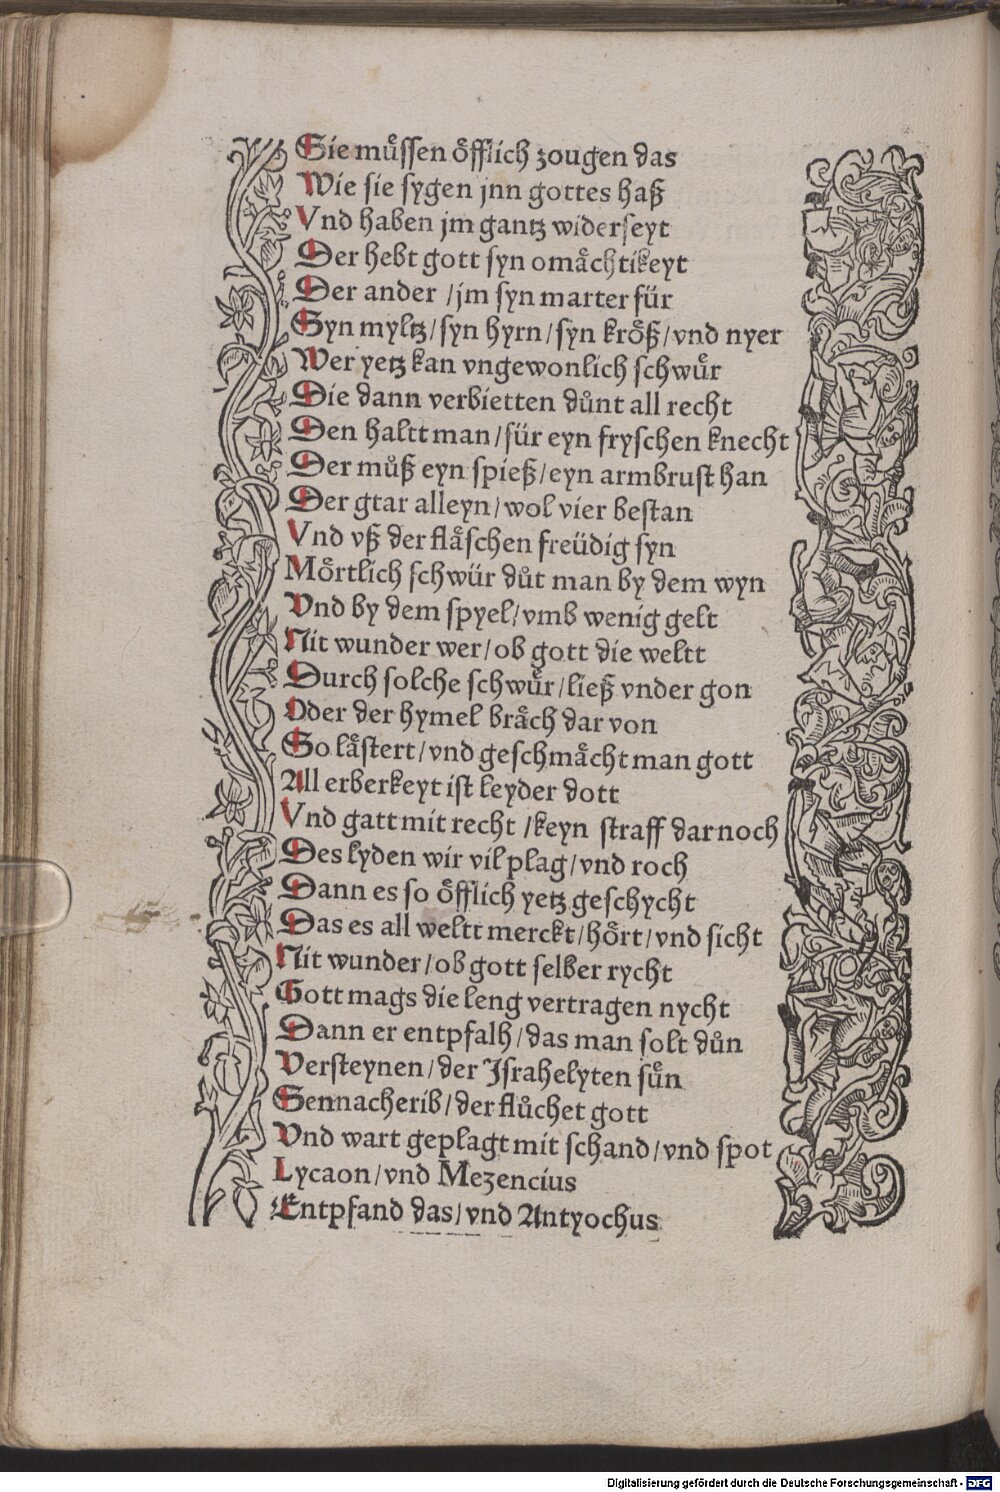 Sie muͤſſen oͤfflich zougen das
Wie sie sygen jnn gottes haß
Vnd haben jm gantz widerſeyt
Der hebt gott syn omaͤchtikeyt
Der ander / jm syn marter für
Syn myltz / syn hyrn / syn kroͤß / vnd nyer
Wer yetz kan vngewonlich schwuͤr
Die dann verbietten duͦnt all recht
Den haltt man / für eyn fryschen knecht
Der muͦß eyn spieß / eyn armbruſt han
Der gtar alleyn / wol vier bestan
Vnd vß der flaͤschen freüdig syn
Moͤrtlich schwür duͦt man by dem wyn
Vnd by dem spyel / vmb wenig gelt
Nit wunder wer / ob gott die weltt
Durch solche schwuͤr / ließ vnder gon
Oder der hymel braͤch dar von
So laͤstert / vnd geschmaͤcht man gott
All erberkeyt ist leyder dott
Vnd gatt mit recht / keyn straff darnoch
Des lyden wir vil plag / vnd roch
Dann es so oͤfflich yetz geschycht
Das es all weltt merckt / hoͤrt / vnd sicht
Nit wunder / ob gott selber rycht
Gott mags die leng vertragen nycht
Dann er entpfalh / das man solt duͦn
Versteynen / der Israhelyten suͤn
Sennacherib / der fluͦchet gott
Vnd wart geplagt mit schand / vnd spot
Lycaon / vnd Mezencius
Entpfand das / vnd Antyochus
Digitalisierung gefördert durch die Deutsche Forschungsgemeinschaft - DFG